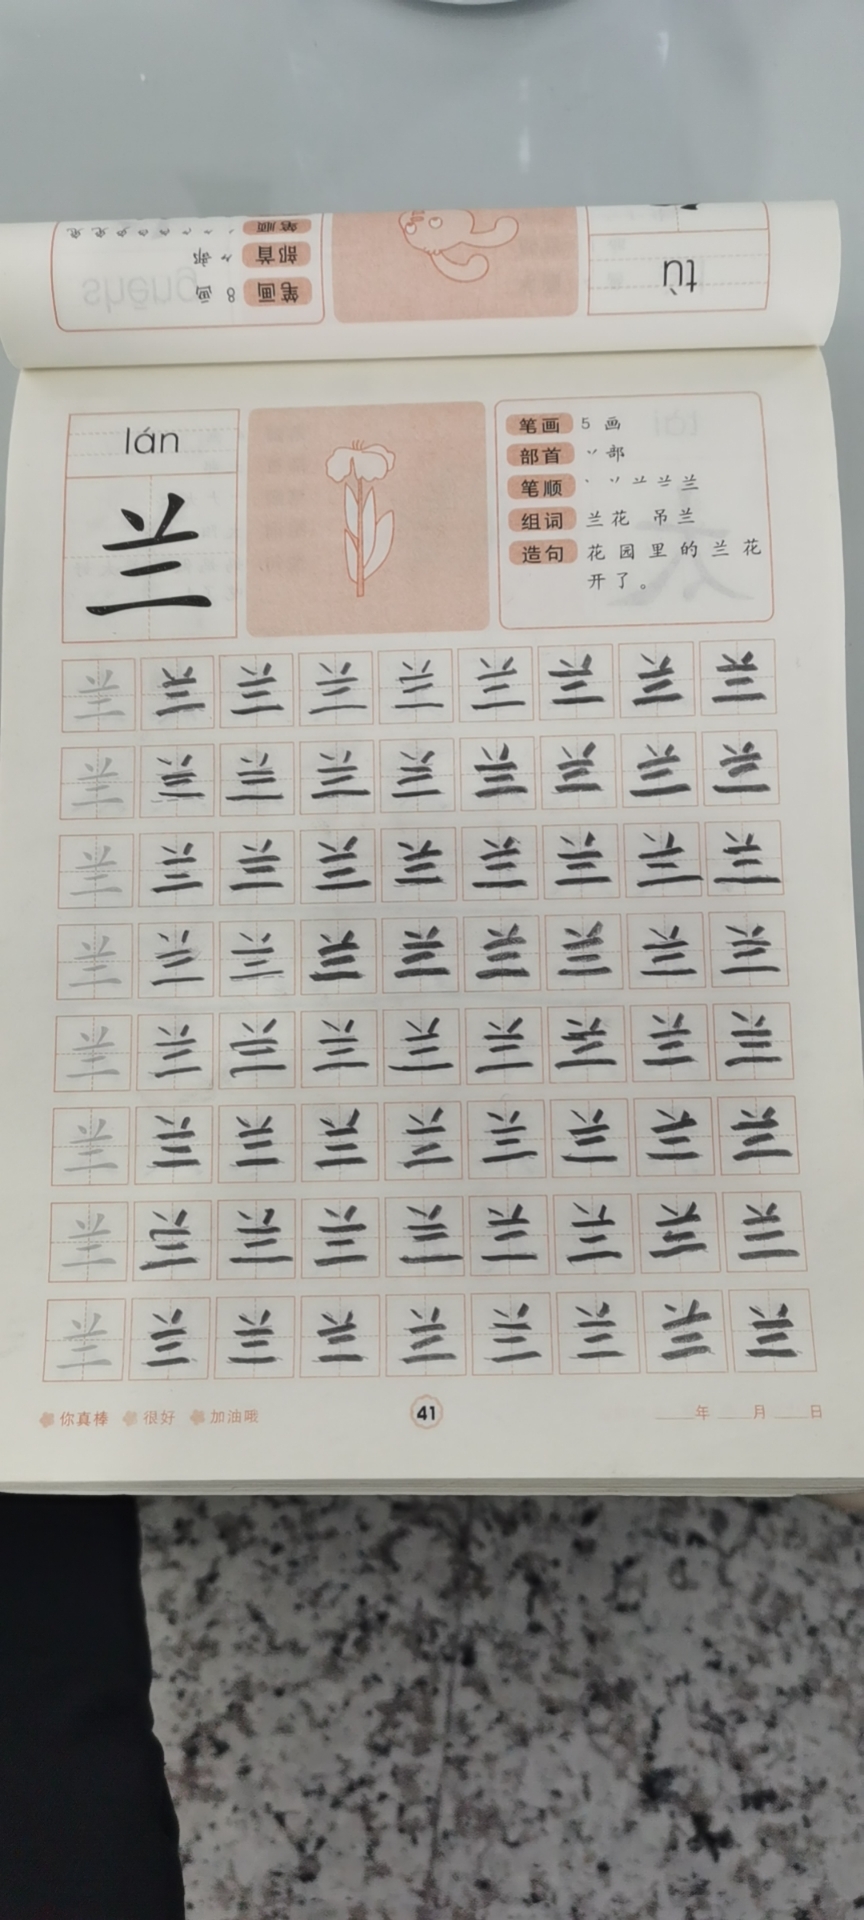 tù
笔画 8 画
部首
笔顺
lán
兰
笔画 5 画
部首 丷部
笔顺 丶 丷 䒑 兰 兰
组词 兰花 吊兰
造句 花园里的兰花
开了。
兰 兰 兰 兰 兰 兰 兰 兰 兰
兰 兰 兰 兰 兰 兰 兰 兰 兰
兰 兰 兰 兰 兰 兰 兰 兰 兰
兰 兰 兰 兰 兰 兰 兰 兰 兰
兰 兰 兰 兰 兰 兰 兰 兰 兰
兰 兰 兰 兰 兰 兰 兰 兰 兰
兰 兰 兰 兰 兰 兰 兰 兰 兰
兰 兰 兰 兰 兰 兰 兰 兰 兰
你真棒 很好 加油哦
41
年 月 日